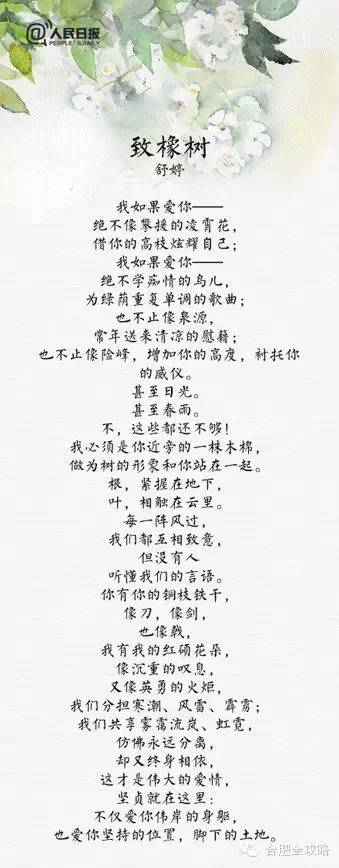 @人民日报
PEOPLE'S DAILY
致橡树
舒婷
我如果爱你——
绝不像攀援的凌霄花，
借你的高枝炫耀自己；
我如果爱你——
绝不学痴情的鸟儿，
为绿荫重复单调的歌曲；
也不止像泉源，
常年送来清凉的慰籍；
也不止像险峰，增加你的高度，衬托你
的威仪。
甚至日光。
甚至春雨。
不，这些都还不够！
我必须是你近旁的一株木棉，
做为树的形象和你站在一起。
根，紧握在地下，
叶，相触在云里。
每一阵风过，
我们都互相致意，
但没有人
听懂我们的言语。
你有你的铜枝铁干，
像刀，像剑，
也像戟，
我有我的红硕花朵，
像沉重的叹息，
又像英勇的火炬，
我们分担寒潮、风雷、霹雳；
我们共享雾霭流岚、虹霓，
仿佛永远分离，
却又终身相依，
这才是伟大的爱情，
坚贞就在这里：
不仅爱你伟岸的身躯，
也爱你坚持的位置，脚下的土地。
合肥全攻略